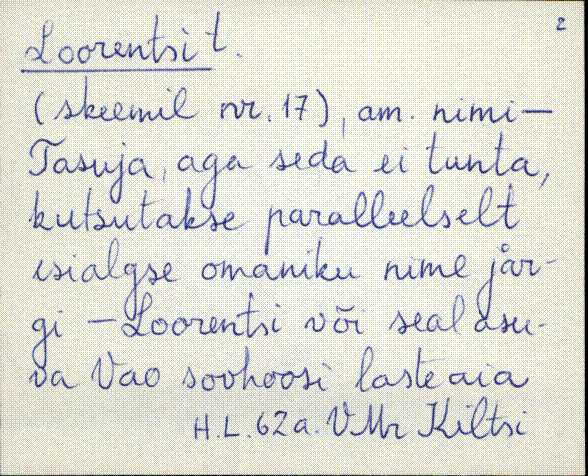 2
Loorentsi t.
(skeemil nr. 17), am. nimi—
Tasuja, aga seda ei tunta,
kutsutakse paralleelselt
esialgse omaniku nime jär-
gi — Loorentsi või seal asu-
va Vao sovhoosi lasteaia
H.L. 62a. VMr Kiltsi